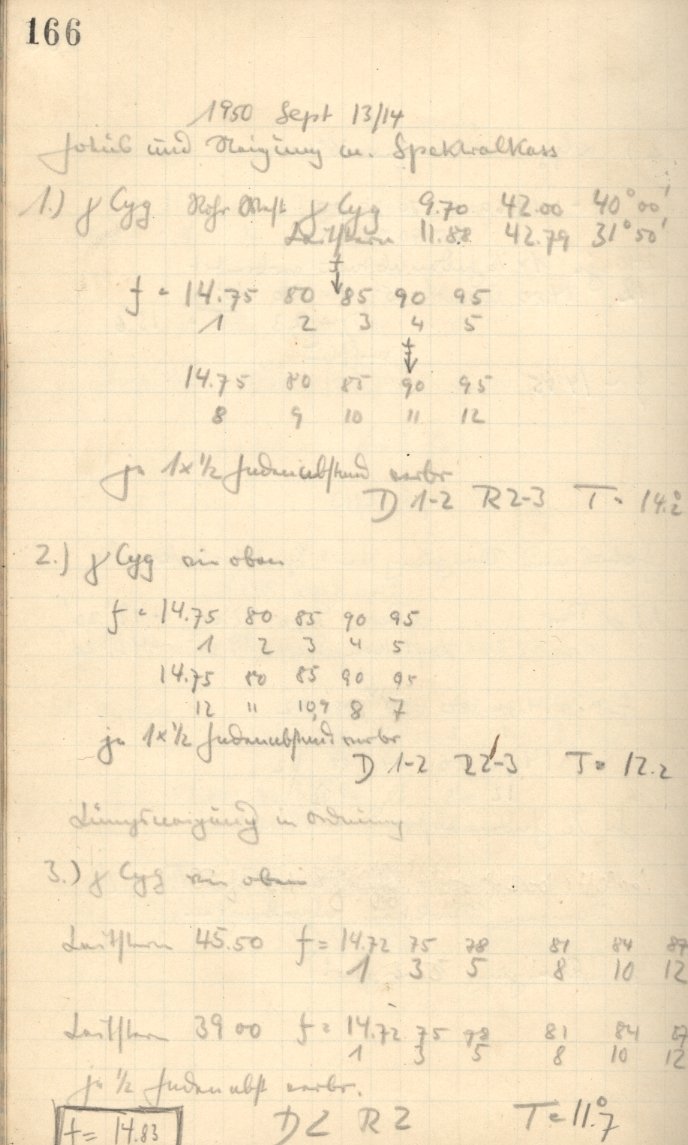 166
1950 Sept 13/14
Fokus und Neigung m. Spektralkass
1.) γ Cyg Rohr West γ Cyg 9.70 42.00 40°00'
Leitstern 11.88 42.79 31°50'
f = 14.75 80 85 90 95
1 2 3 4 5
14.75 80 85 90 95
8 9 10 11 12
je 1x½ Fadenabstand verbr
D 1-2 R 2-3 T = 14.2°
2.) γ Cyg wie oben
f = 14.75 80 85 90 95
1 2 3 4 5
14.75 80 85 90 95
12 11 10,9 8 7
je 1x½ Fadenabstand verbr
D 1-2 R 2-3 T = 12.2
Längsneigung in Ordnung
3.) γ Cyg wie oben
Leitstern 45.50 f = 14.72 75 78 81 84 87
1 3 5 8 10 12
Leitstern 39 00 f = 14.72 75 78 81 84 87
1 3 5 8 10 12
je ½ Fadenabst verbr.
f = 14.83 D 2 R 2 T = 11.7°